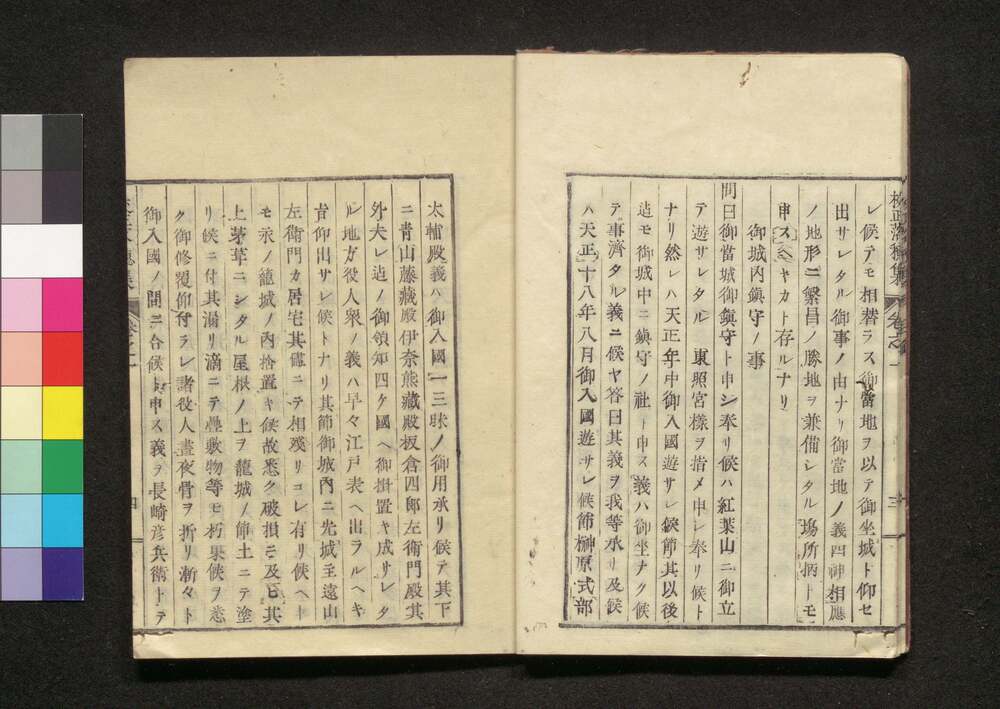 校正落穂集 卷之一 三
レ候テモ相替ラス御當地ヲ以テ御坐城ト仰セ
出サレタル御事ノ由ナリ御當地ノ義四神相應
ノ地形ニ繁昌ノ勝地ヲ兼備シタル塲所柄トモ
申スヘキヤカト存ルナリ
御城内鎭守ノ事
問曰御當城御鎭守ト申シ奉リ候ハ紅葉山ニ御立
テ遊サレタル 東照宮樣ヲ指メ申シ奉リ候ト
ナリ然レハ天正年中御入國遊サレ候節其以後
迚モ御城中ニ鎭守ノ社ト申ス義ハ御坐ナク候
テ事濟タル義ニ候ヤ答曰其義ヲ我等承リ及候
ハ天正十八年八月御入國遊サレ候節榊原式部
太輔殿義ハ御入國一三昧ノ御用承リ候テ其下
ニ青山藤藏殿伊奈熊藏殿板倉四郎左衛門殿其
外夫レ迠ノ御領知四ケ國ヘ御揹置キ成サレタ
ル地方役人衆ノ義ハ早々江戸表ヘ出ラルヘキ
旨仰出サレ候トナリ其節御城内ニ先城主遠山
左衛門カ居宅其儘ニテ相殘リコレ有リ候ヘト
モ永ノ籠城ノ内捨置キ候故悉ク破損ニ及ヒ其
上茅葺ニシタル屋根ノ上ヲ籠城ノ節土ニテ塗
リ候ニ付其漏リ滴ニテ疊敷物等モ朽果候ヲ悉
ク御修覆仰付ラレ諸役人晝夜骨ヲ折リ漸々ト
御入國ノ間ニ合候ト申ス義ヲ長崎彦兵衛トテ
四